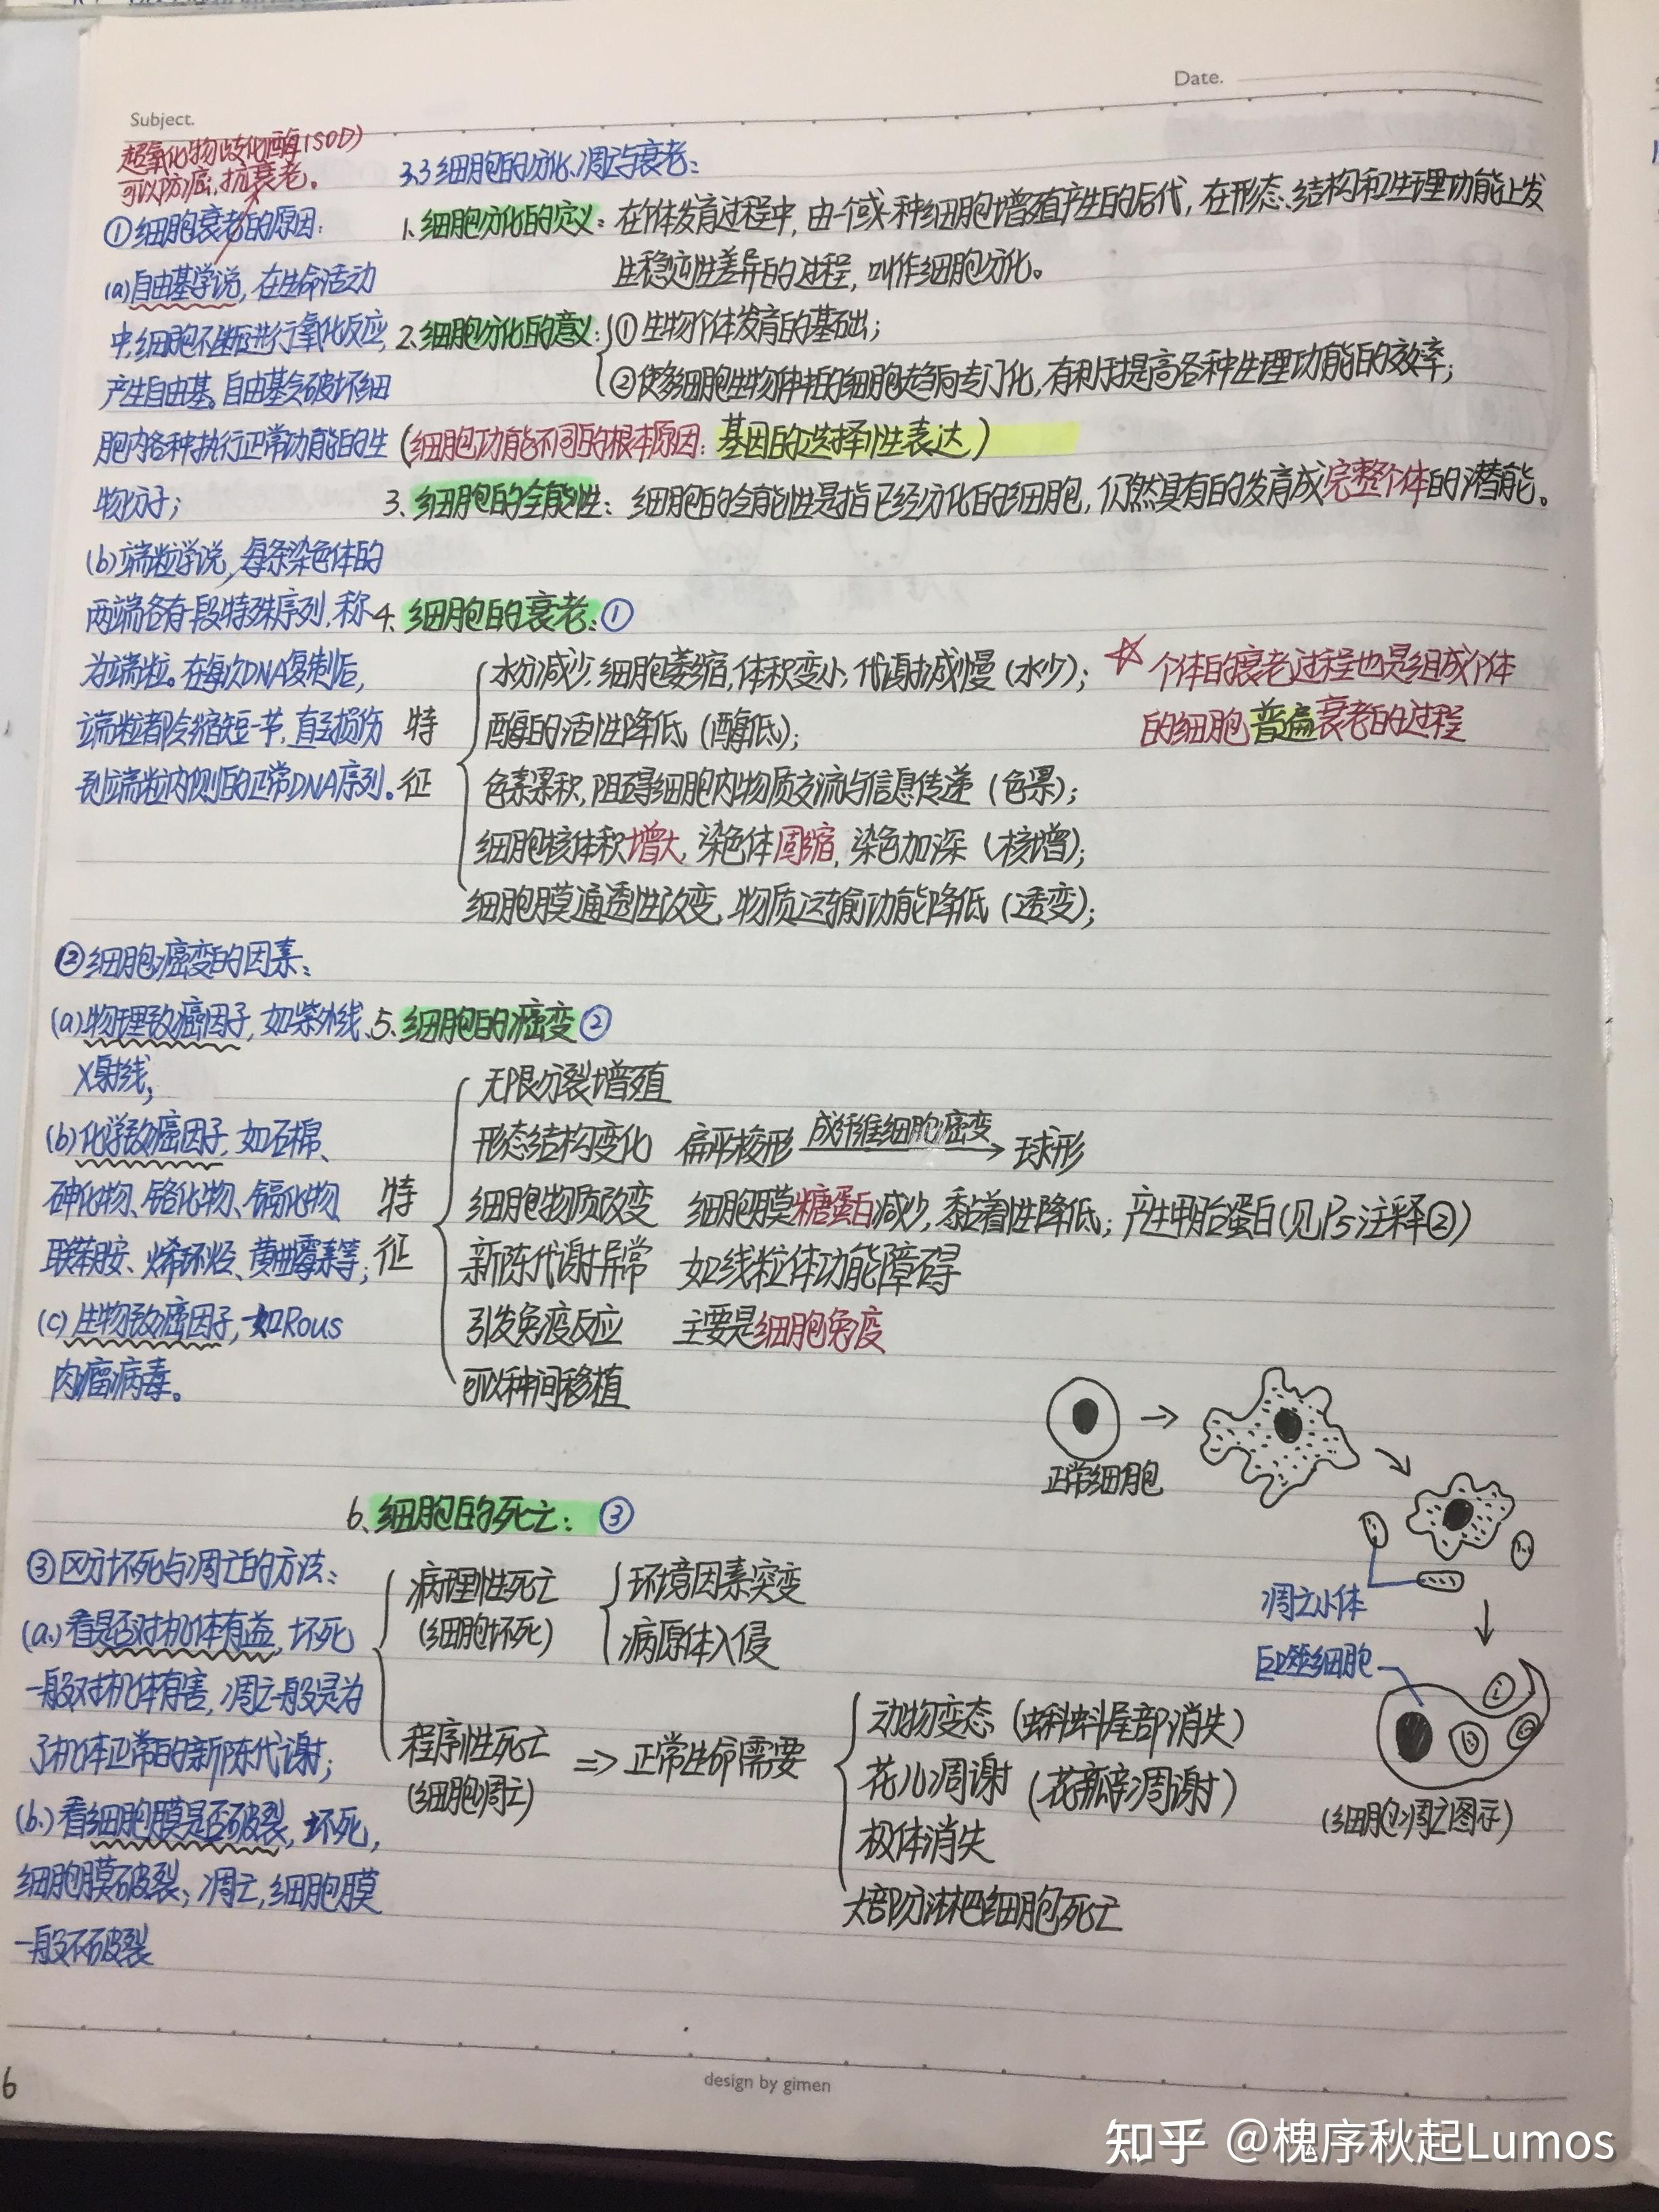 Date.
Subject.
超氧化物歧化酶(SOD)
可以防癌,抗衰老。
①细胞衰老的原因:
(a)自由基学说,在生命活动
中,细胞不断进行氧化反应,
产生自由基。自由基会破坏细
胞内各种执行正常功能的生
物分子;
(b)端粒学说,每条染色体的
两端各有一段特殊序列,称
为端粒。在每次DNA复制后,
端粒都会缩短一节,直至损伤
到端粒内侧的正常DNA序列。
②细胞癌变的因素:
(a)物理致癌因子,如紫外线、
X射线;
(b)化学致癌因子,如石棉、
砷化物、铬化物、镉化物、
联苯胺、烯环烃、黄曲霉素等;
(c)生物致癌因子,如Rous
肉瘤病毒。
③区分坏死与凋亡的方法:
(a.)看是否对机体有益,坏死
一般对机体有害,凋亡一般是为
了机体正常的新陈代谢;
(b.)看细胞膜是否破裂,坏死,
细胞膜破裂;凋亡,细胞膜
一般不破裂
3.3细胞的分化、凋亡与衰老:
1、细胞分化的定义:在个体发育过程中,由一个或一种细胞增殖产生的后代,在形态、结构和生理功能上发
生稳定性差异的过程,叫作细胞分化。
2、细胞分化的意义:①生物个体发育的基础;
②使多细胞生物体中的细胞趋向专门化,有利于提高各种生理功能的效率;
(细胞功能不同的根本原因:基因的选择性表达)
3、细胞的全能性:细胞的全能性是指已经分化的细胞,仍然具有的发育成完整个体的潜能。
4、细胞的衰老:①
特征
水分减少,细胞萎缩,体积变小,代谢减慢(水少);
酶的活性降低(酶低);
色素累积,阻碍细胞内物质交流与信息传递(色累);
细胞核体积增大,染色体固缩,染色加深(核增);
细胞膜通透性改变,物质运输功能降低(透变);
☆个体的衰老过程也是组成个体
的细胞普遍衰老的过程
5、细胞的癌变②
特征
无限分裂增殖
形态结构变化 扁平梭形 成纤维细胞癌变→ 球形
细胞物质改变 细胞膜糖蛋白减少,黏着性降低;产生甲胎蛋白(见P5注释②)
新陈代谢异常 如线粒体功能障碍
引发免疫反应 主要是细胞免疫
可以种间移植
6、细胞的死亡:③
病理性死亡
(细胞坏死)
环境因素突变
病原体入侵
程序性死亡
(细胞凋亡)
⇒正常生命需要
动物变态(蝌蚪尾部消失)
花儿凋谢(花瓣凋谢)
极体消失
大部分淋巴细胞死亡
正常细胞
凋亡小体
巨噬细胞
(细胞凋亡图示)
design by gimen
6
知乎 @槐序秋起Lumos